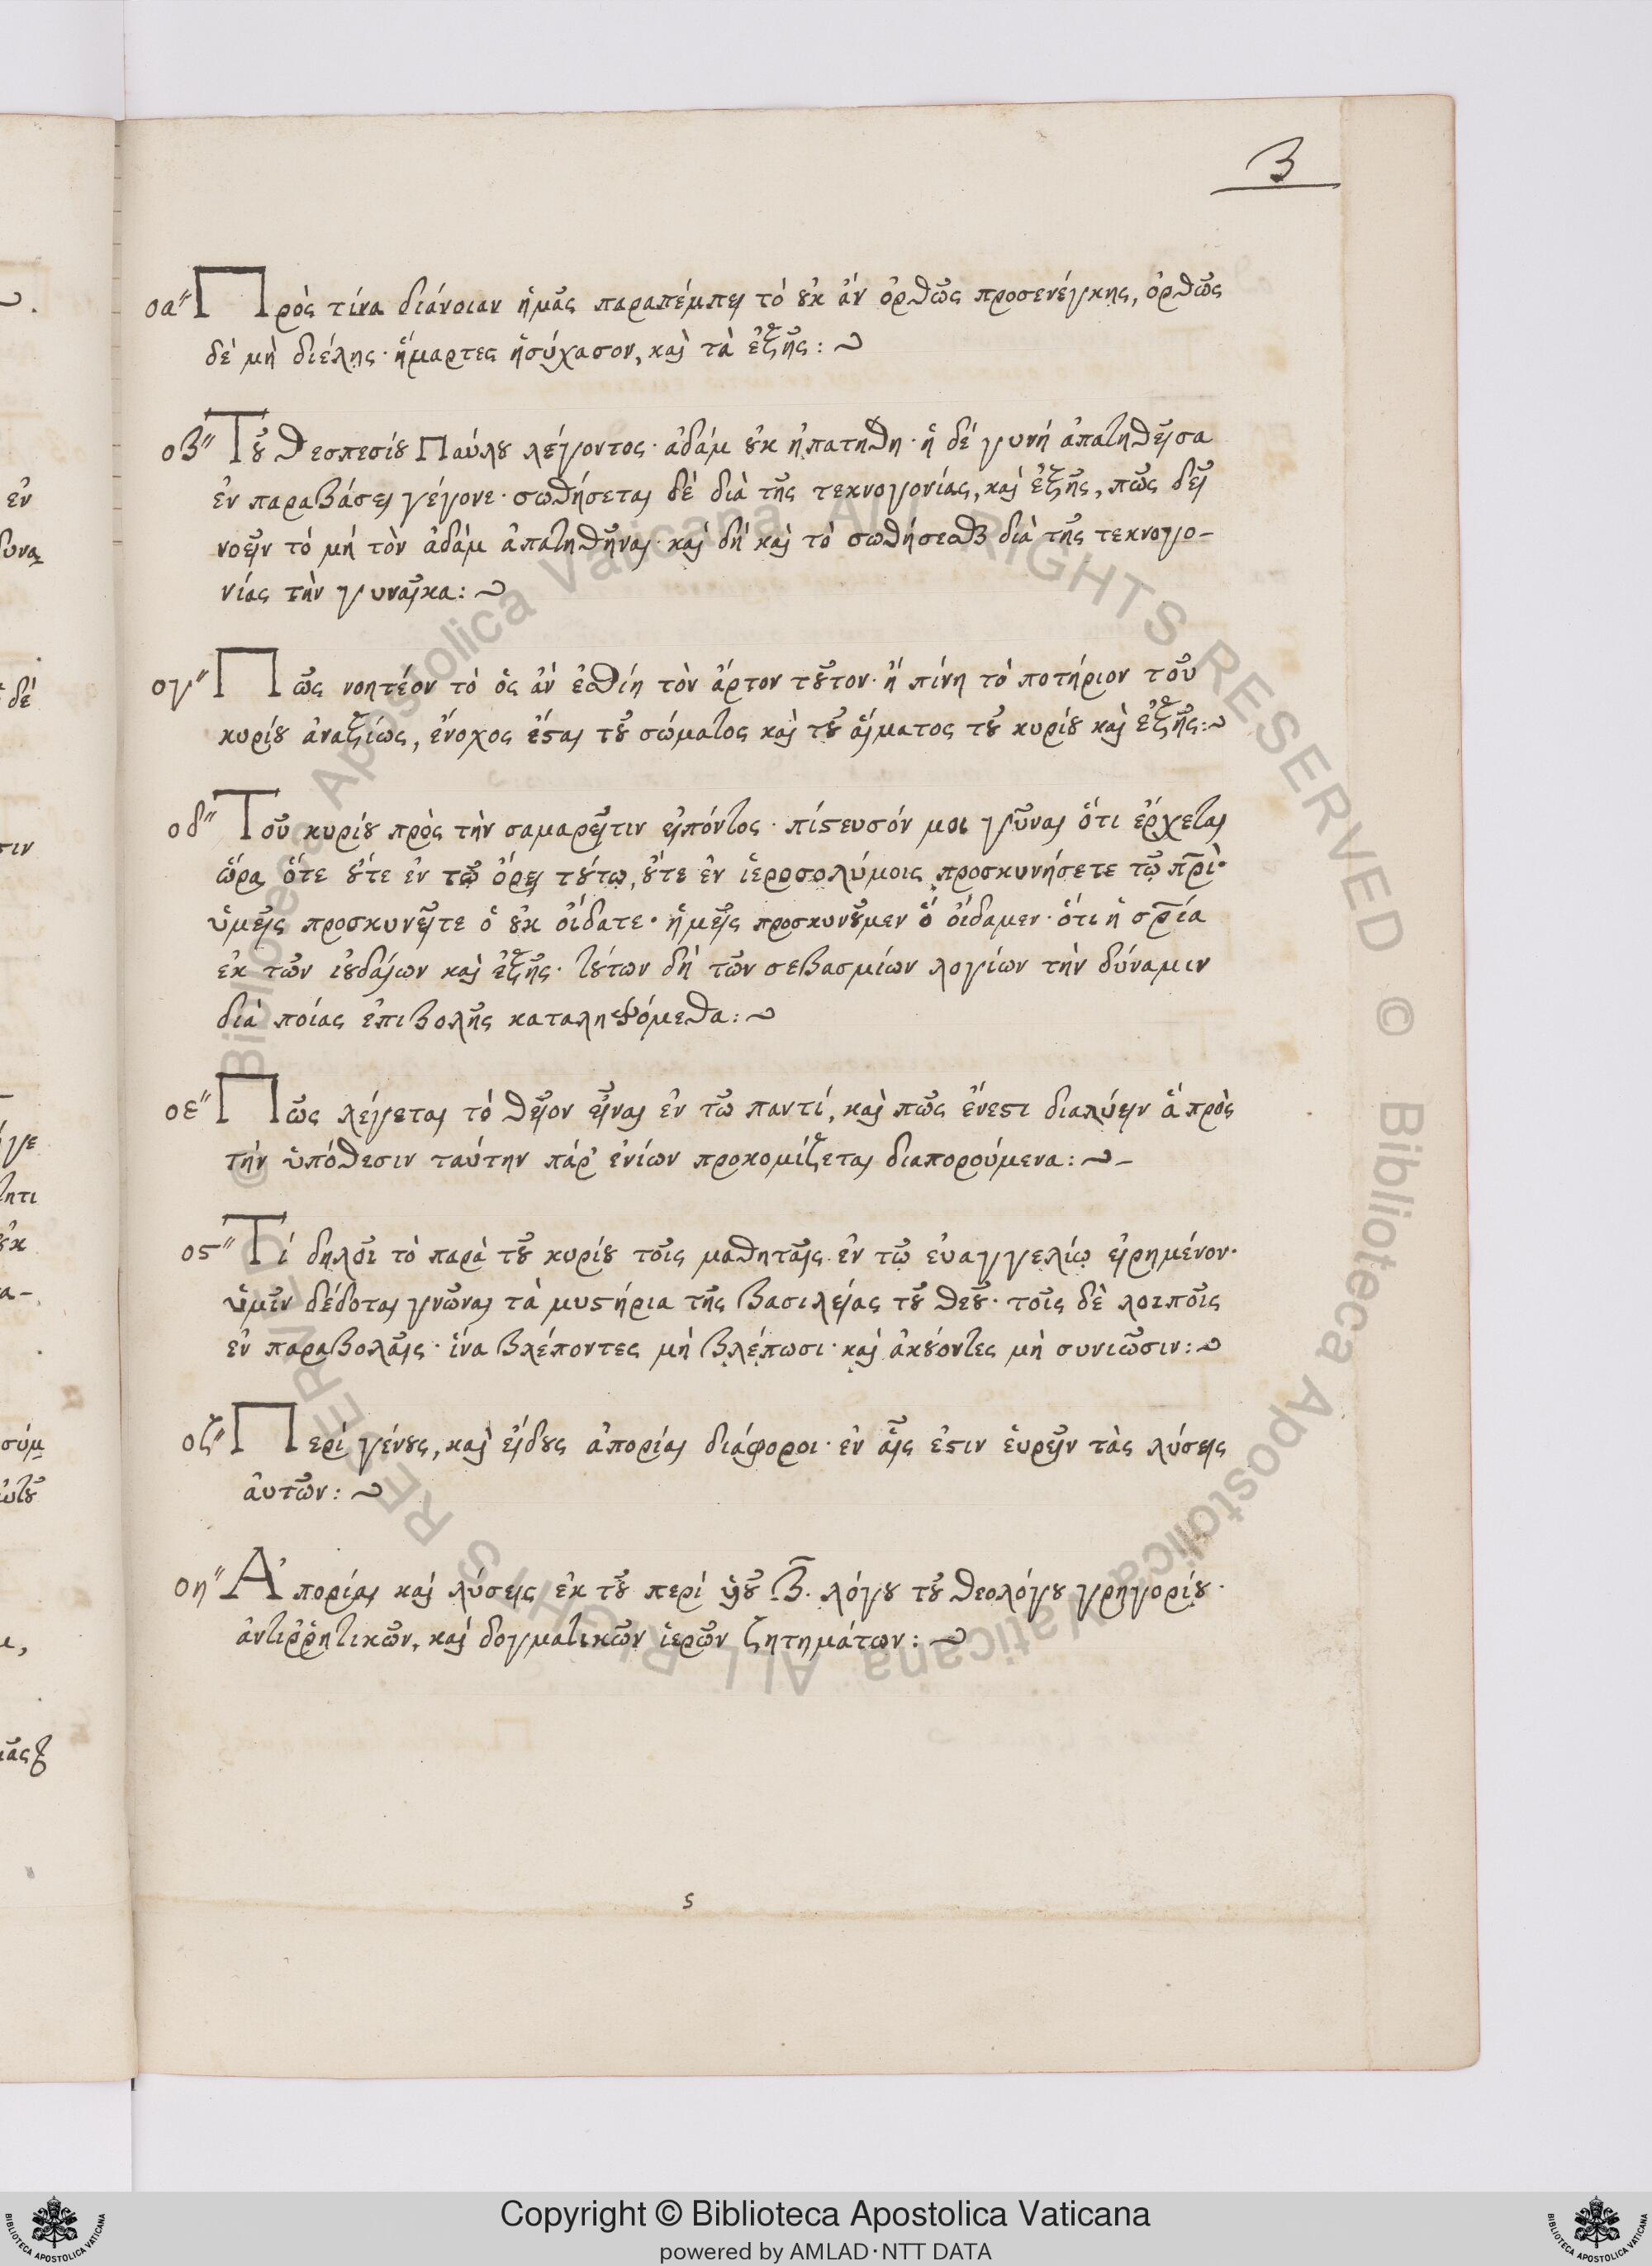 3
οα″ Πρὸς τίνα διάνοιαν ἡμᾶς παραπέμπει τό οὐκ ἄν ὀρθῶς προσενέγκης, ὀρθῶς
δέ μὴ διέλης· ἥμαρτες ἡσύχασον, καὶ τὰ ἐξῆς:
οβ″ Τοῦ θεσπεσίου Παύλου λέγοντος· ἀδάμ οὐκ ἠπατήθη· ἡ δέ γυνή ἀπατηθεῖσα
ἐν παραβάσει γέγονε· σωθήσεται δέ διὰ τῆς τεκνογονίας, καὶ ἐξῆς, πῶς δεῖ
νοεῖν τό μή τὸν ἀδάμ ἀπατηθῆναι· καὶ δή καὶ τὸ σωθήσεσθαι διὰ τῆς τεκνογο-
νίας τὴν γυναῖκα:
ογ″ Πῶς νοητέον τὸ ὅς ἄν ἐσθίη τὸν ἄρτον τοῦτον· ἤ πίνη τὸ ποτήριον τοῦ
κυρίου ἀναξίως, ἔνοχος ἔσται τοῦ σώματος καὶ τοῦ αἵματος τοῦ κυρίου καὶ ἐξῆς:
οδ″ Τοῦ κυρίου πρὸς τὴν σαμαρεῖτιν εἰπόντος· πίστευσόν μοι γῦναι ὅτι ἔρχεται
ὥρα, ὅτε οὔτε ἐν τῷ ὄρει τούτῳ, οὔτε ἐν ἱεροσολύμοις προσκυνήσετε τῷ πρὶ·
ὑμεῖς προσκυνεῖτε ὅ οὐκ οἴδατε· ἡμεῖς προσκυνοῦμεν ὅ οἴδαμεν· ὅτι ἡ σρία
ἐκ τῶν ἰουδαίων καὶ ἐξῆς· τούτων δὴ τῶν σεβασμίων λογίων τὴν δύναμιν
διά ποίας ἐπιβολῆς καταληψόμεθα:
οε″ Πῶς λέγεται τό θεῖον εἶναι ἐν τῶ παντί, καὶ πῶς ἔνεστι διαλύειν ἅ πρὸς
τὴν ὑπόθεσιν ταύτην πάρ' ἐνίων προκομίζεται διαπορούμενα: –
ος″ Τί δηλοῖ τὸ παρὰ τοῦ κυρίου τοῖς μαθηταῖς ἐν τῷ εὐαγγελίῳ εἰρημένον·
ὑμῖν δέδοται γνῶναι τὰ μυστήρια τῆς βασιλείας τοῦ θεοῦ· τοῖς δὲ λοιποῖς
ἐν παραβολαῖς· ἵνα βλέποντες μὴ βλέπωσι· καὶ ἀκούοντες μὴ συνιῶσιν:
οζ″ Περί γένους, καὶ εἴδους ἀπορίαι διάφοροι· ἐν αἷς ἐστιν εὑρεῖν τὰς λύσεις
αὐτῶν:
οη″ Ἀπορίαι καὶ λύσεις ἐκ τοῦ περί υἱοῦ β. λόγου τοῦ θεολόγου γρηγορίου·
ἀντιῤῥητικῶν, καὶ δογματικῶν ἱερῶν ζητημάτων:
ς
© Biblioteca Apostolica Vaticana ALL RIGHTS RESERVED © Biblioteca Apostolica Vaticana ALL RIGHTS RESERVED
Copyright © Biblioteca Apostolica Vaticana
powered by AMLAD·NTT DATA